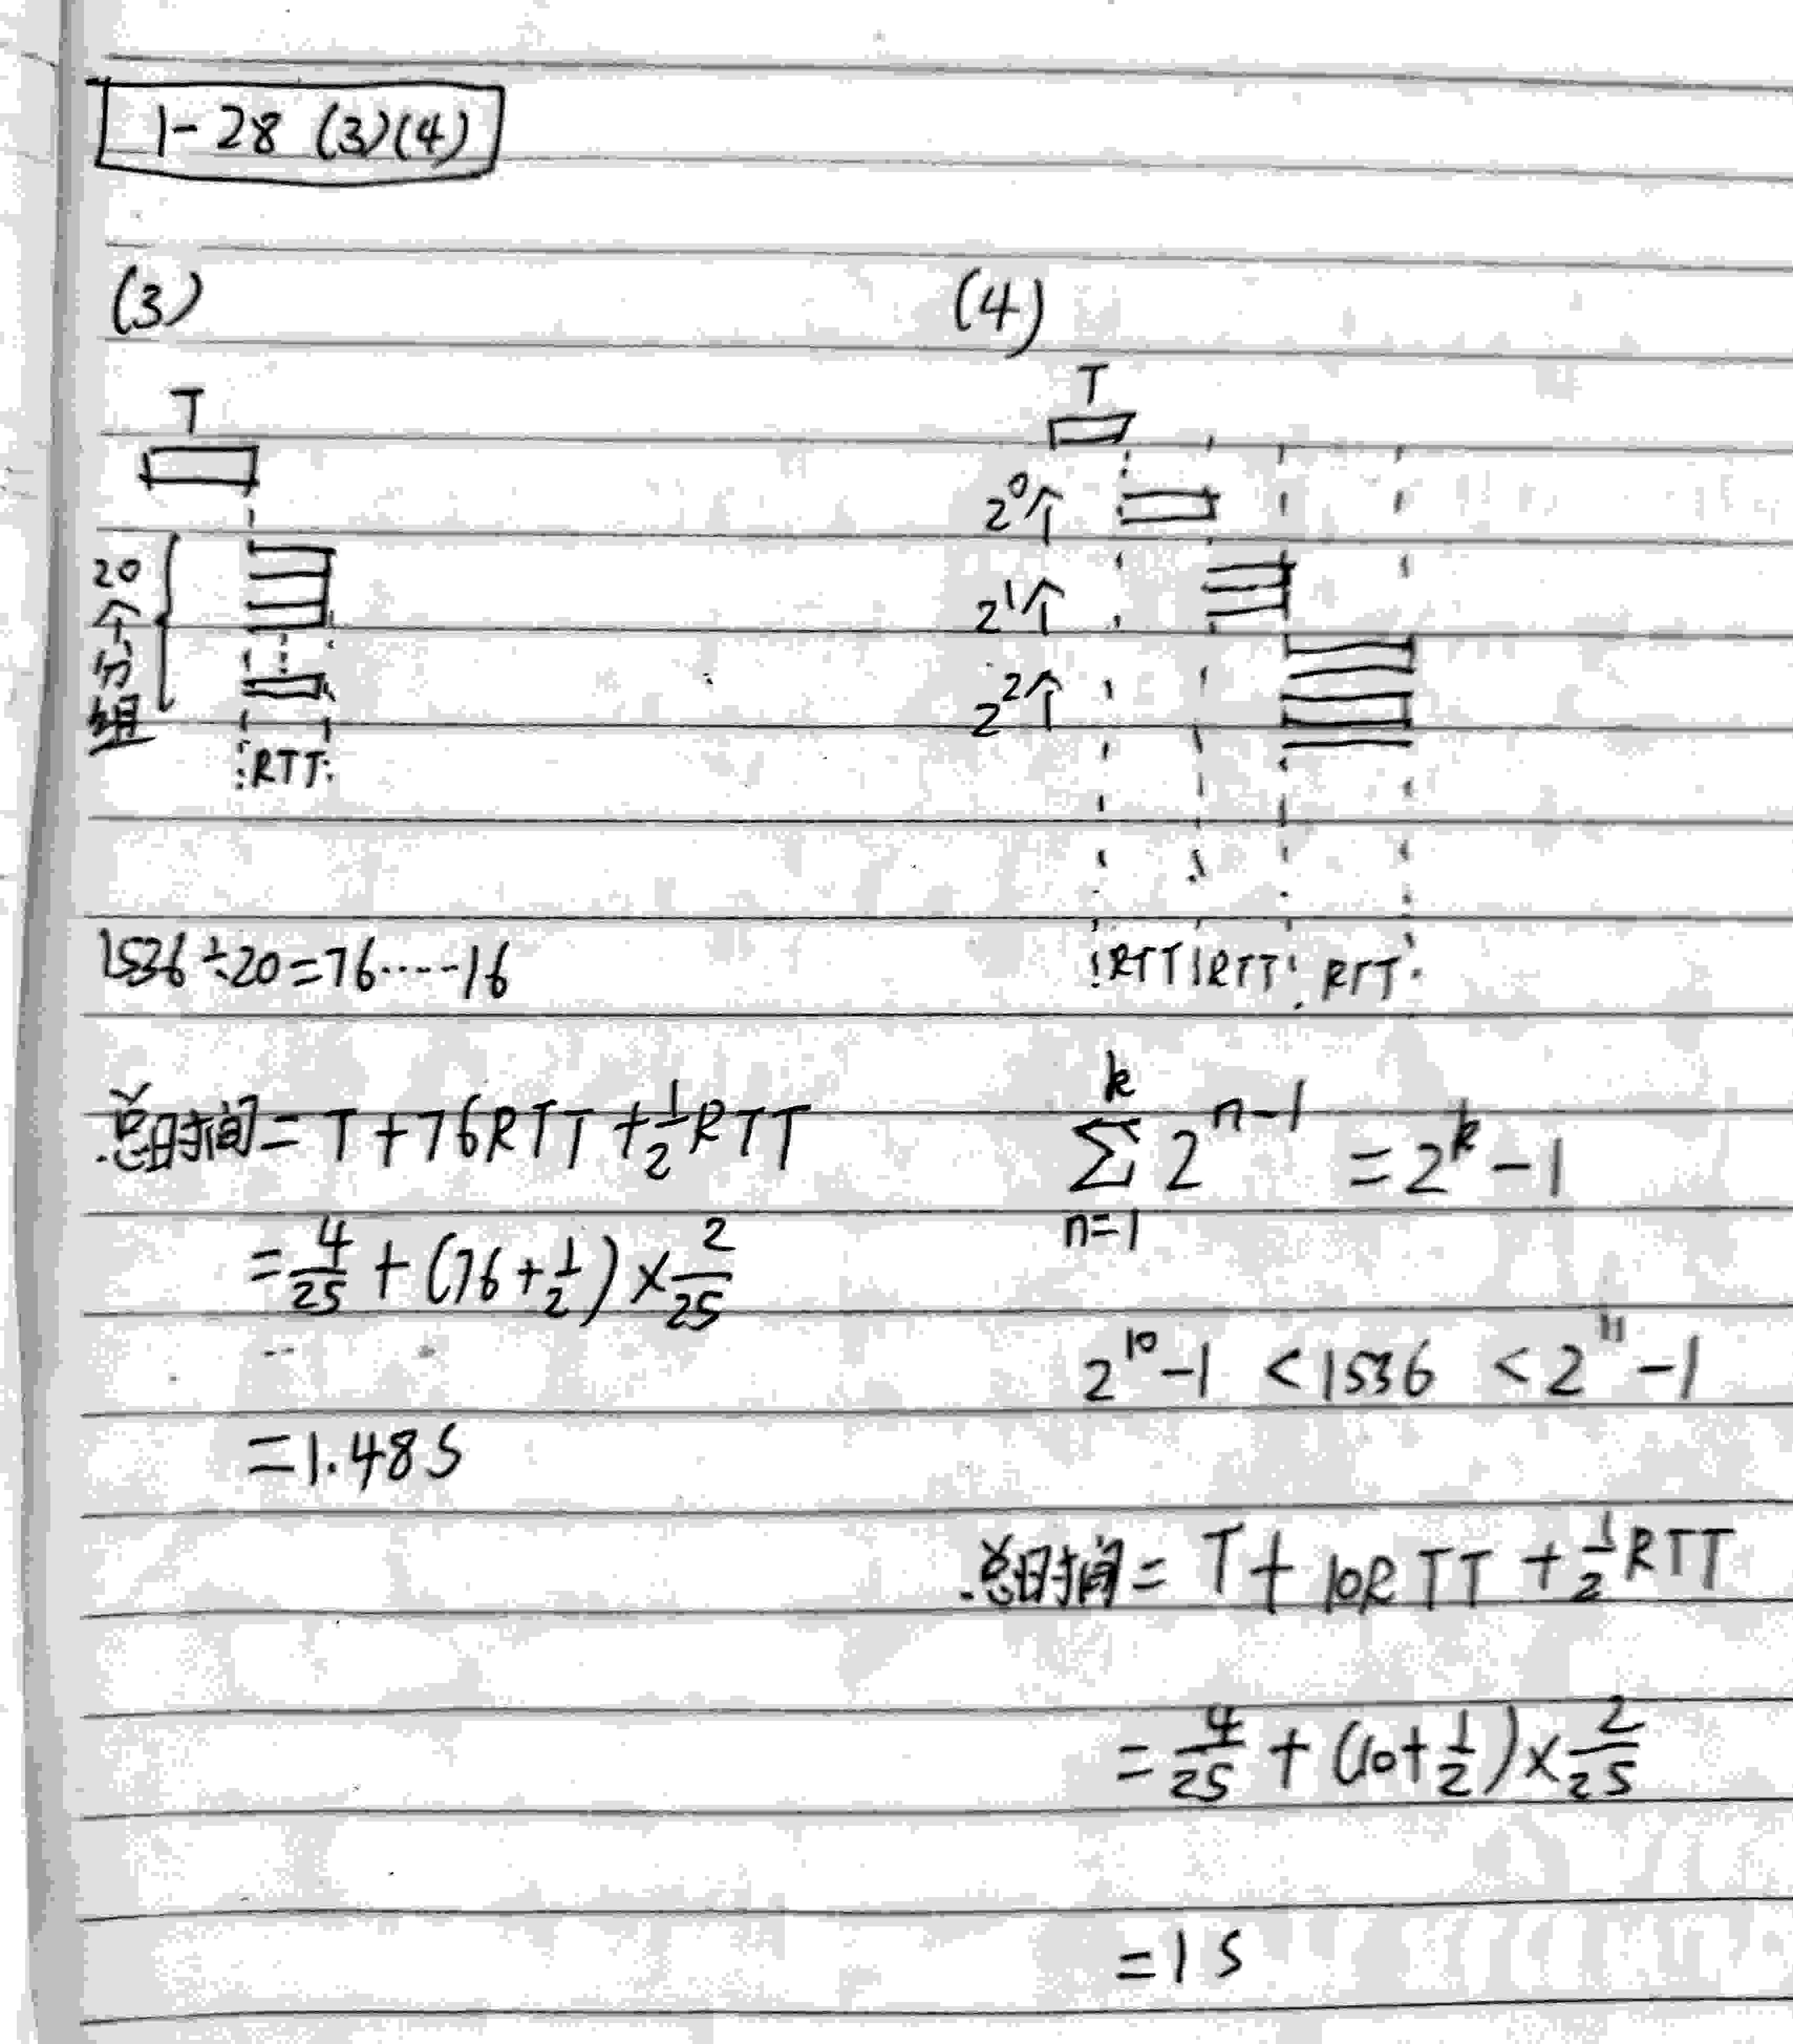 1-28 (3)(4)
(3)
T
20个分组
RTT
1536÷20=76·····16
总时间=T+76RTT+½RTT
=4/25+(76+½)×2/25
=1.48S
(4)
T
2⁰个
2¹个
2²个
RTT RTT RTT
∑ₙ₌₁ᵏ 2ⁿ⁻¹ =2ᵏ-1
2¹⁰-1 <1536 <2¹¹-1
总时间=T+10RTT+½RTT
=4/25+(10+½)×2/25
=1S